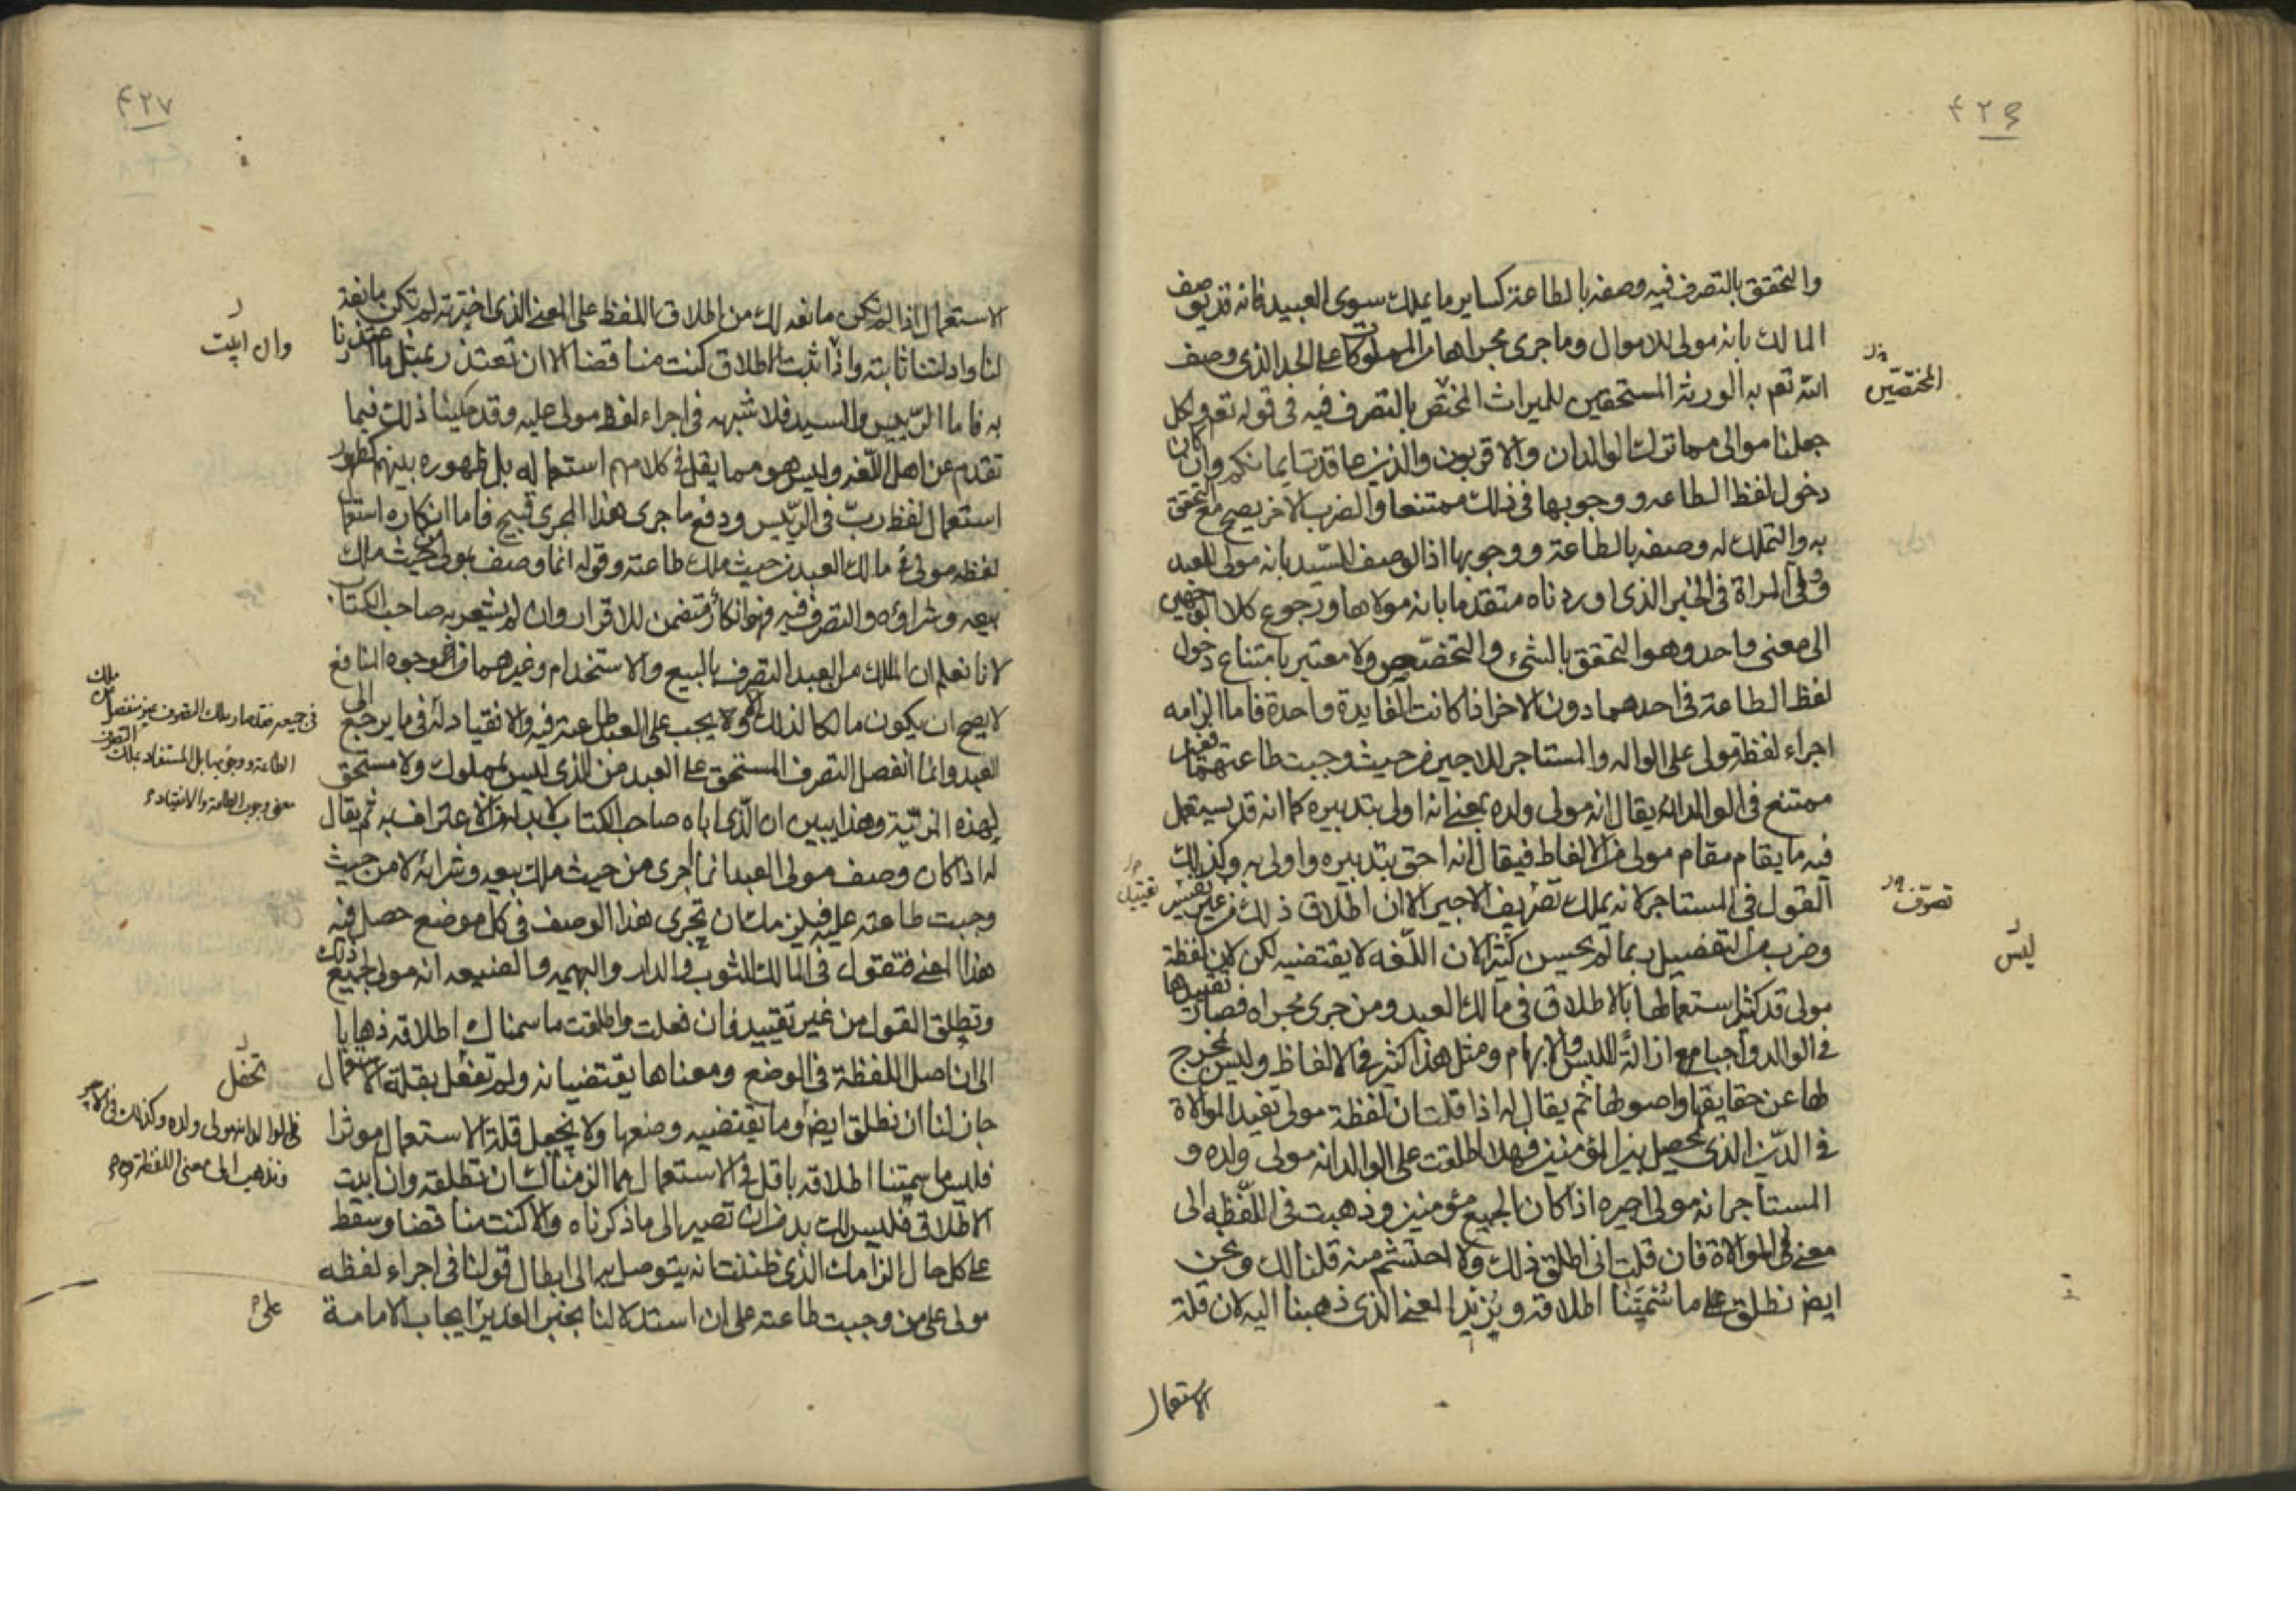 ٤٢٦
والتحقق بالتصرف فيه وصفه بالطاعة كساير ما يملك سوى العبيد فانه قد يوصف
المالك بانه مولى للاموال وما جرى مجراها من المملوكات على الحد الذى وصف
الله تعم به الورثة المستحقين للميراث المختص بالتصرف فيه فى قوله تعم ولكل
جعلنا موالى مما ترك الوالدان والاقربون والذين عاقدت ايمانكم وان كان
دخول لفظ الطاعه ووجوبها فى ذلك ممتنعا والضرب الاخر يصح مع التحقق
به والتملك له وصفه بالطاعة ووجوبها اذا لوصف السيد بانه مولى العبد
وولى المراة فى الخبر الذى اوردناه متقدما بانه مولاها ورجوع كلا الوجهين
الى معنى واحد وهو التحقق بالشىء والتخصص ولا معتبر بامتناع دخول
لفظ الطاعة فى احدهما دون الاخر اذا كانت الفايدة واحدة فاما الزامه
اجراء لفظة مولى على الوالد والمستاجر للاجير من حيث وجبت طاعتهما فغير
ممتنع فى الوالد ان يقال انه مولى ولده بمعنى انه اولى بتدبيره كما انه قد يستعمل
فيه ما يقام مقام مولى من الالفاظ فيقال انه احق بتدبيره واولى به وكذلك
القول فى المستاجر لانه يملك تصريف الاجير الا ان اطلاق ذلك من غير تفسير
وضرب من التفصيل ربما لم يحسن كثيرا لان اللغه لا يقتضيه لكن لان لفظة
مولى قد كثر استعمالها بالاطلاق فى مالك العبد ومن جرى مجراه فصار تقييدها
فى الوالد واجبا مع ازالة اللبس والابهام ومثل هذا كثير فى الالفاظ وليس بمخرج
لها عن حقايقها واصولها ثم يقال له اذا قلت ان لفظة مولى تفيد الموالاة
فى الدين الذى يحصل بين المؤمنين فهلا اطلقت على الوالد انه مولى ولده و
المستاجر انه مولى اجيره اذا كان الجميع مؤمنين وذهبت فى اللفظه الى
معنى الموالاة فان قلت انى اطلق ذلك ولا احتشم منه قلنا لك ونحن
ايض نطلق على ما سُمتَنا اطلاقه ونريد المعنى الذى ذهبنا اليه لان قلة
الاستعمال
المختصين
تصرف
ليس
٤٢٧
الاستعمال اذا لم تكن مانعه لك من اطلاق اللفظ على المعنى الذى اخترته لم تكن مانعة
لنا وادلتنا ثابته واذا ثبت الاطلاق كنت مناقضا الا ان تعتذر بمثل ما اعتذرنا
به فاما الرئيس والسيد فلا شبهه فى اجراء لفظ مولى عليه وقد حكينا ذلك فيما
تقدم عن اهل اللغه وليس هو مما يقل فى كلامهم استعماله بل ظهوره بينهم كظهور
استعمال لفظ ربّ فى الرئيس ودفع ما جرى هذا المجرى قبيح فاما انكاره استعمال
لفظه مولى فى مالك العبد من حيث ملك طاعته وقوله انما وصف بمولى من حيث ملك
بيعه وشراؤه والتصرف فيه فهو انكار متضمن للاقرار وان لم يشعر به صاحب الكتاب
لانا نعلم ان الملك من العبد التصرف بالبيع والاستخدام وغيرهما من وجوه المنافع
لا يصح ان يكون مالكا لذلك الا ويجب على العبد طاعته فيه والانقياد له فى ما يرجع الى
العبد وانما انفصل التصرف المستحق على العبد من الذى ليس بمملوك ولا مستحق
لهذه المزية وهذا يبين ان الذى اباه صاحب الكتاب لا بد من الاعتراف به ثم يقال
له اذا كان وصف مولى العبد انما اجرى من حيث ملك بيعه وشرائه لا من حيث
وجبت طاعته عليه فيلزمك ان تجرى هذا الوصف فى كل موضع حصل فيه
هذا المعنى فتقول فى المالك للثوب والدار والبهيمه والضيعه انه مولى لجميع ذلك
وتطلق القول من غير تقييد فان فعلت واطلقت ما سمناك اطلاقه ذهابا
الى ان اصل اللفظة فى الوضع ومعناها يقتضيانه ولم تفعل بقلة الاستعمال
جاز لنا ان نطلق ايض وما يقتضيه وضعها ولا نجعل قلة الاستعمال موثرا
فليس ما سمتنا اطلاقه باقل فى الاستعمال مما الزمناك ان تطلقه وان ابيت
الاطلاق فليس لك بد من ان تصير الى ما ذكرناه والا كنت مناقضا وسقط
على كل حال الزامك الذى ظننت انه يتوصل به الى ابطال قولنا فى اجراء لفظه
مولى على من وجبت طاعته على ان استدلالنا بخبر الغدير ايجاب الامامة
وان ابيت
فى جميعه فقد صار ملك التصرف غير منفصل من ملك
الطاعة ووجوبها بل المستفاد بملك التصرف
معنى وجوب الطاعة والانقياد
تحفل
فى الوالد انه مولى ولده وكذلك فى الاجير
ونذهب الى معنى اللفظة
على